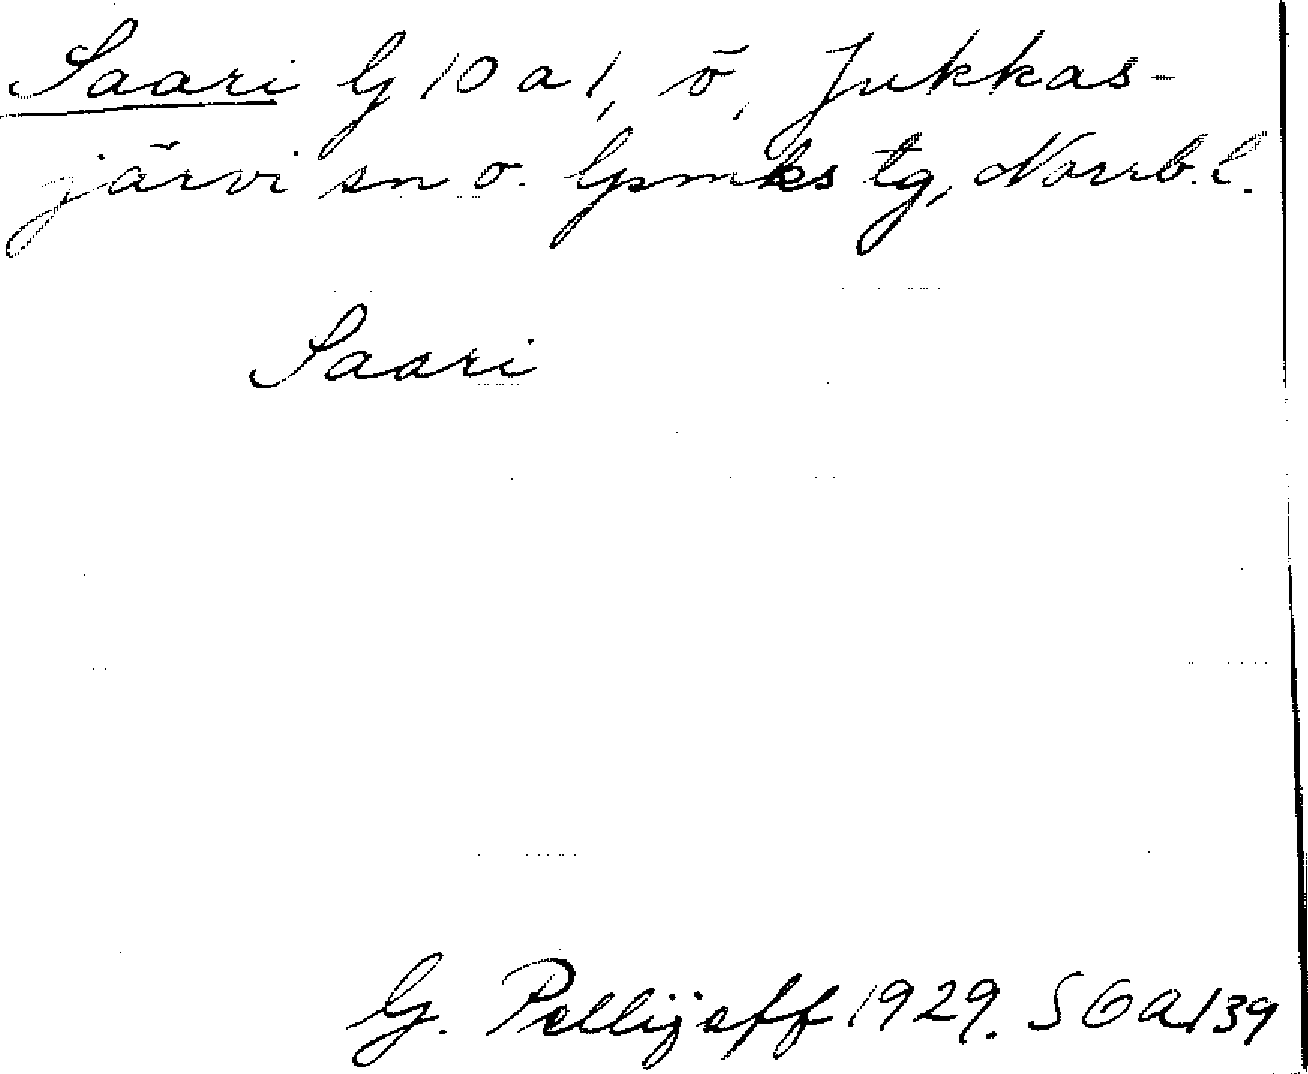 Saari G 10 a 1, ö, Jukkas-
järvi sn o. lpmks tg, Norrb. l.
Saari
G. Pellijeff 1929. SGA 139